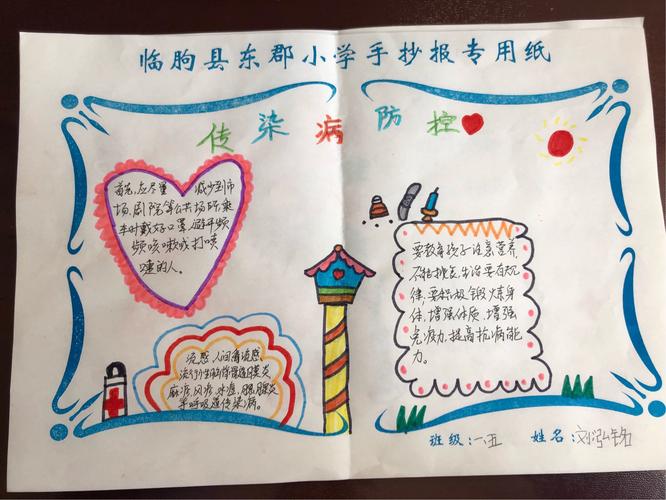 临朐县东郡小学手抄报专用纸
传染病防控
首先,应尽量 减少到市
场、剧院等公共场所,乘
车时戴好口罩,避开频
频咳嗽或打喷
嚏的人。
要教育孩子注意营养,
不挑食,生活要有规
律,要积极锻炼身
体,增强体质,增强
免疫力,提高抗病能
力。
流感、人间禽流感、
流行性 脑膜炎
麻疹、风疹、水痘、腮腺炎
等呼吸道传染病。
班级:一.五 姓名:刘泓铭